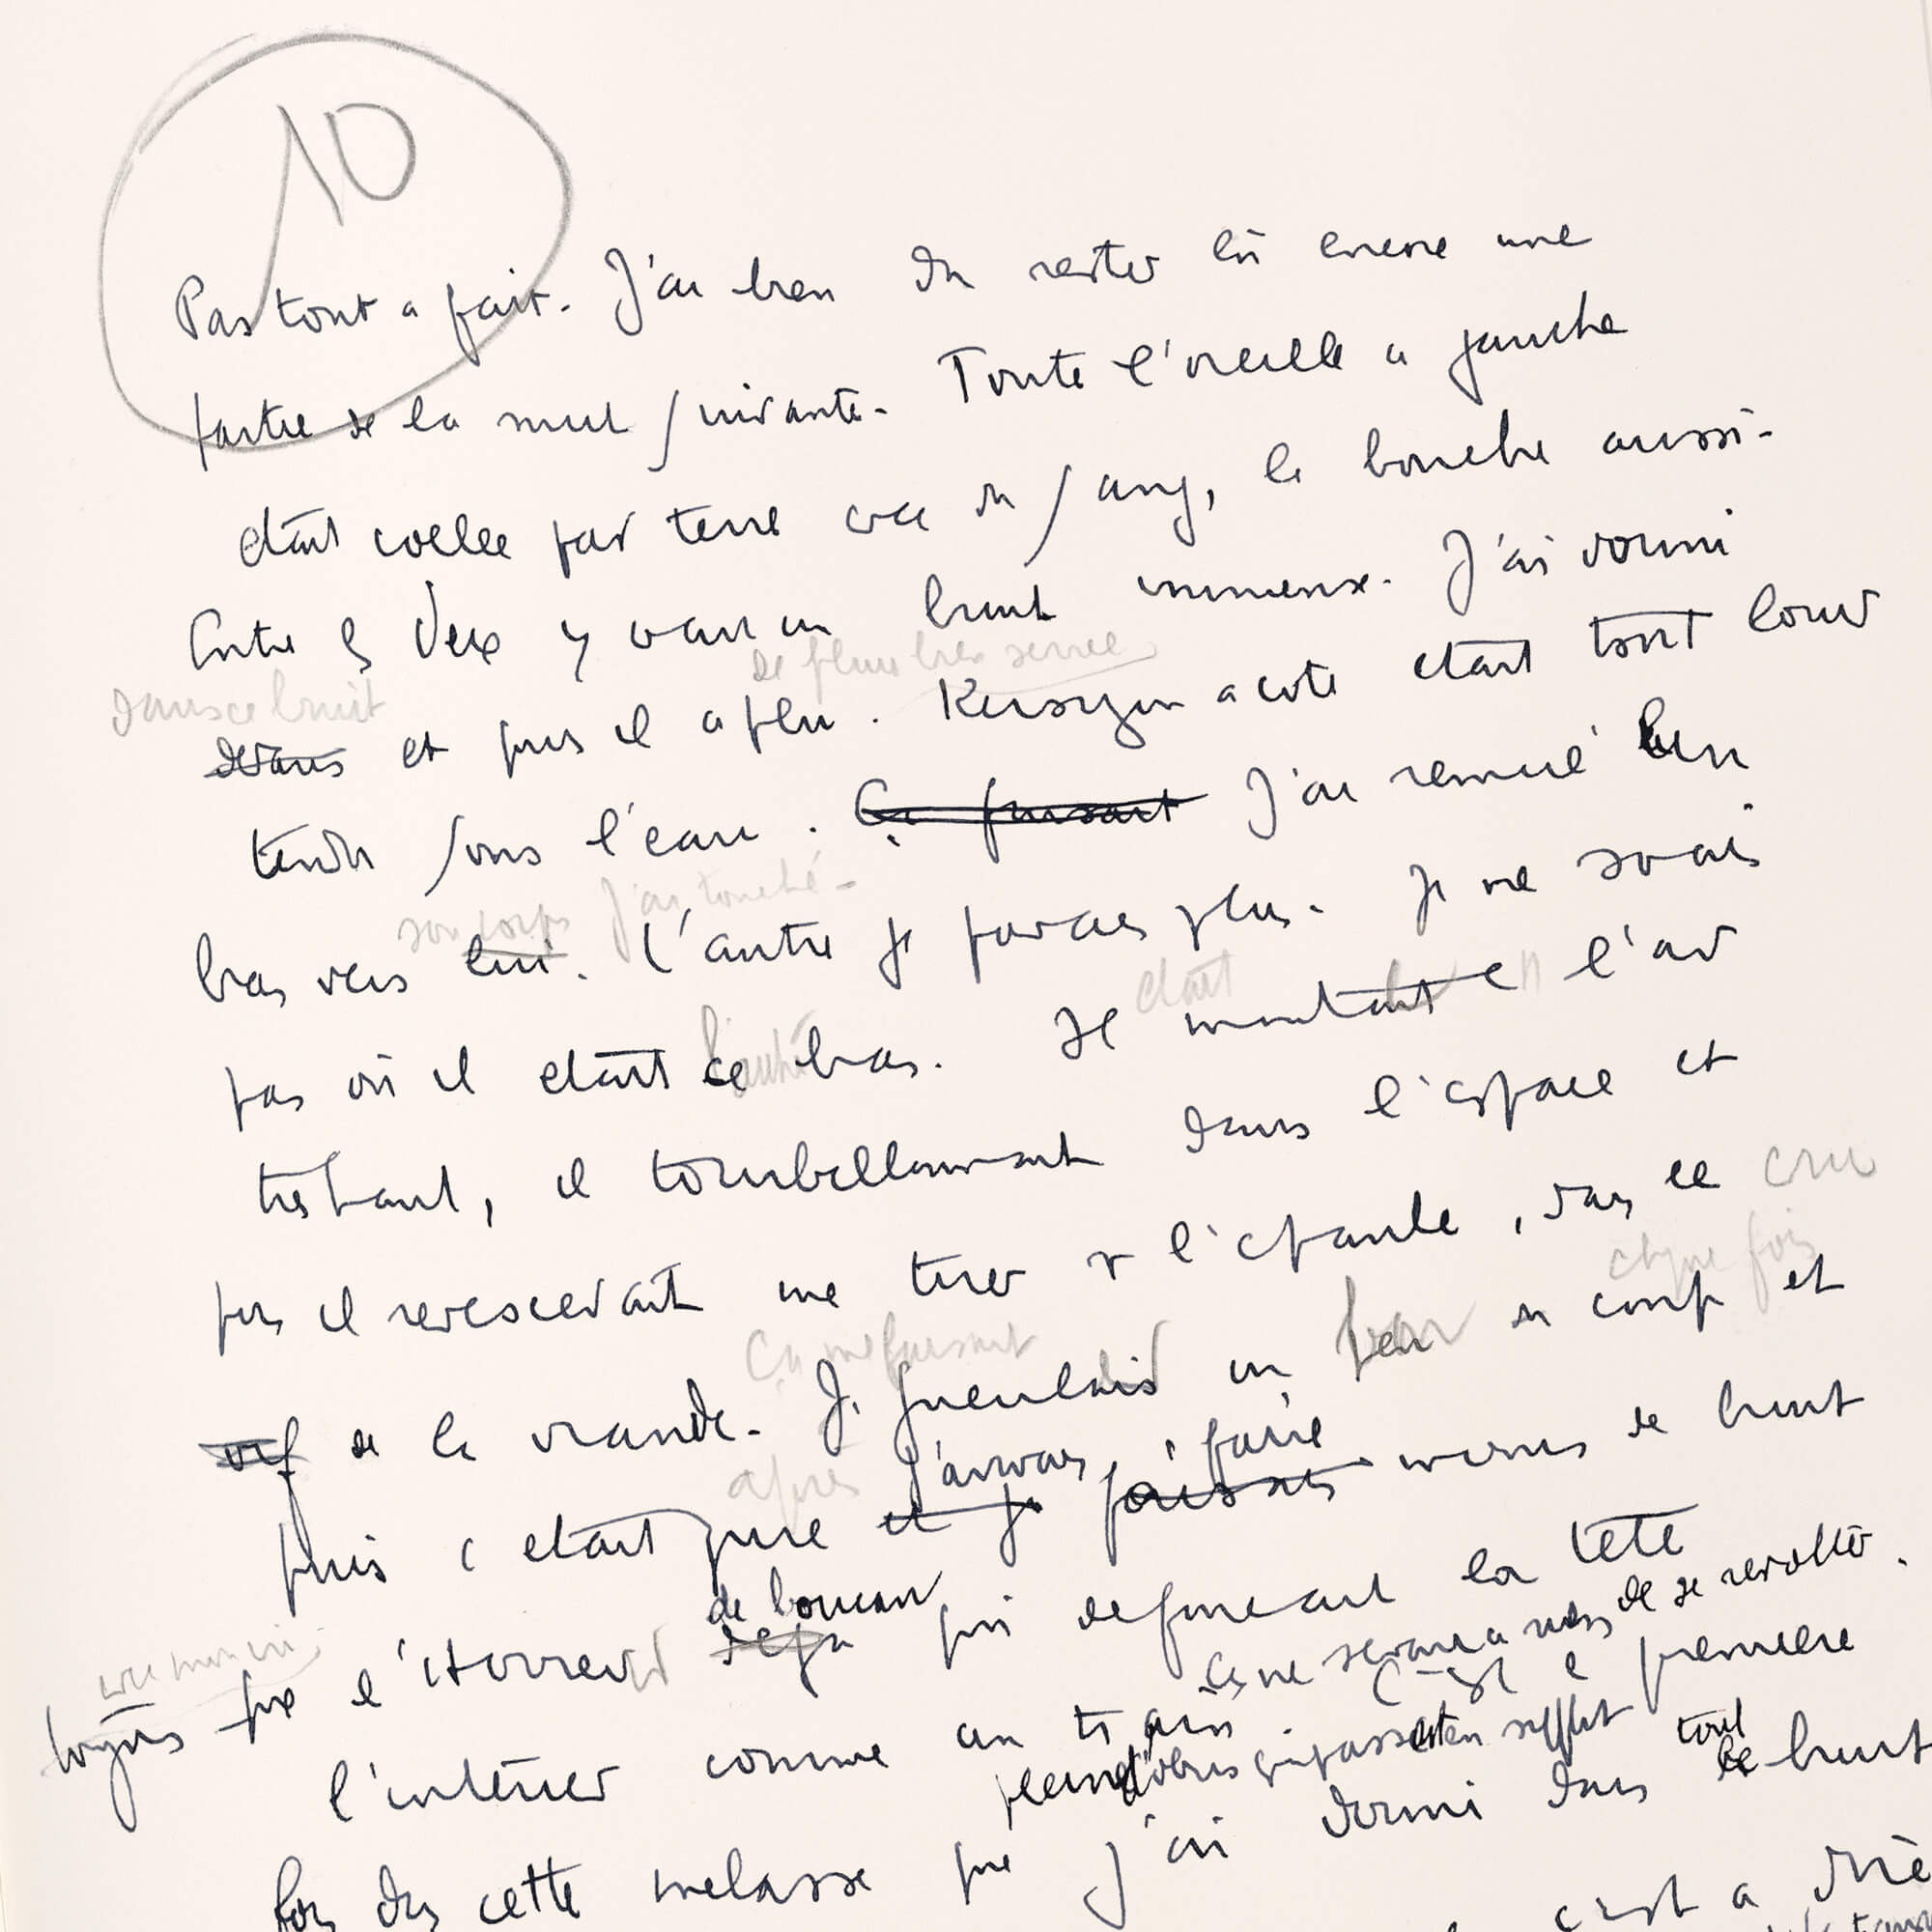 10
Pas tout a fait. J'ai bien du rester là encore une
partie de la nuit suivante. Toute l'oreille a gauche
etait collee par terre avec du sang, la bouche aussi.
Entre les deux y avait un bruit immense. J'ai dormi
dans ce bruit
de pluie très serrée
devans et puis il a plu. Kersuzon a coté etait tout lourd
tendu sous l'eau. Ça faisait J'ai remué un
son corps J'ai touché.
bras vers lui. L'autre je pouvais plus. Je ne savais
etait
pas où il etait ce bras. Il montait l'air
l'autre
tres haut, il tourbillonnait dans l'espace et
puis il redescendait me tirer sur l'epaule, dans le cru
chque fois
vif de la viande. Ça me faisait Je gueulais un coup et
après j'arrivais, à faire
puis c etait pire et je faisais moins de bruit
de boucan
avec mon cri.
toujours que l'horreur deja qui defoncait la tete
ce ne servait a rien de se revolter.
l'intérieur comme un train C'est la premiere
plein d'obus qui passaient en sifflet
fois dans cette melasse que j'ai dormi dans tout le bruit
c'est a dire